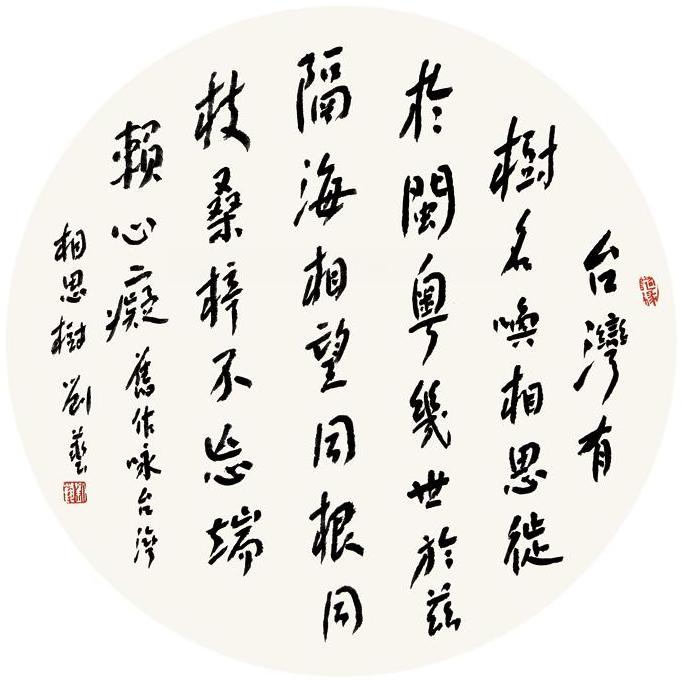 台灣有
樹名喚相思徙
於閩粤幾世於兹
隔海相望同根同
枝桑梓不忘端
賴心癡舊作咏台灣
相思樹劉藝